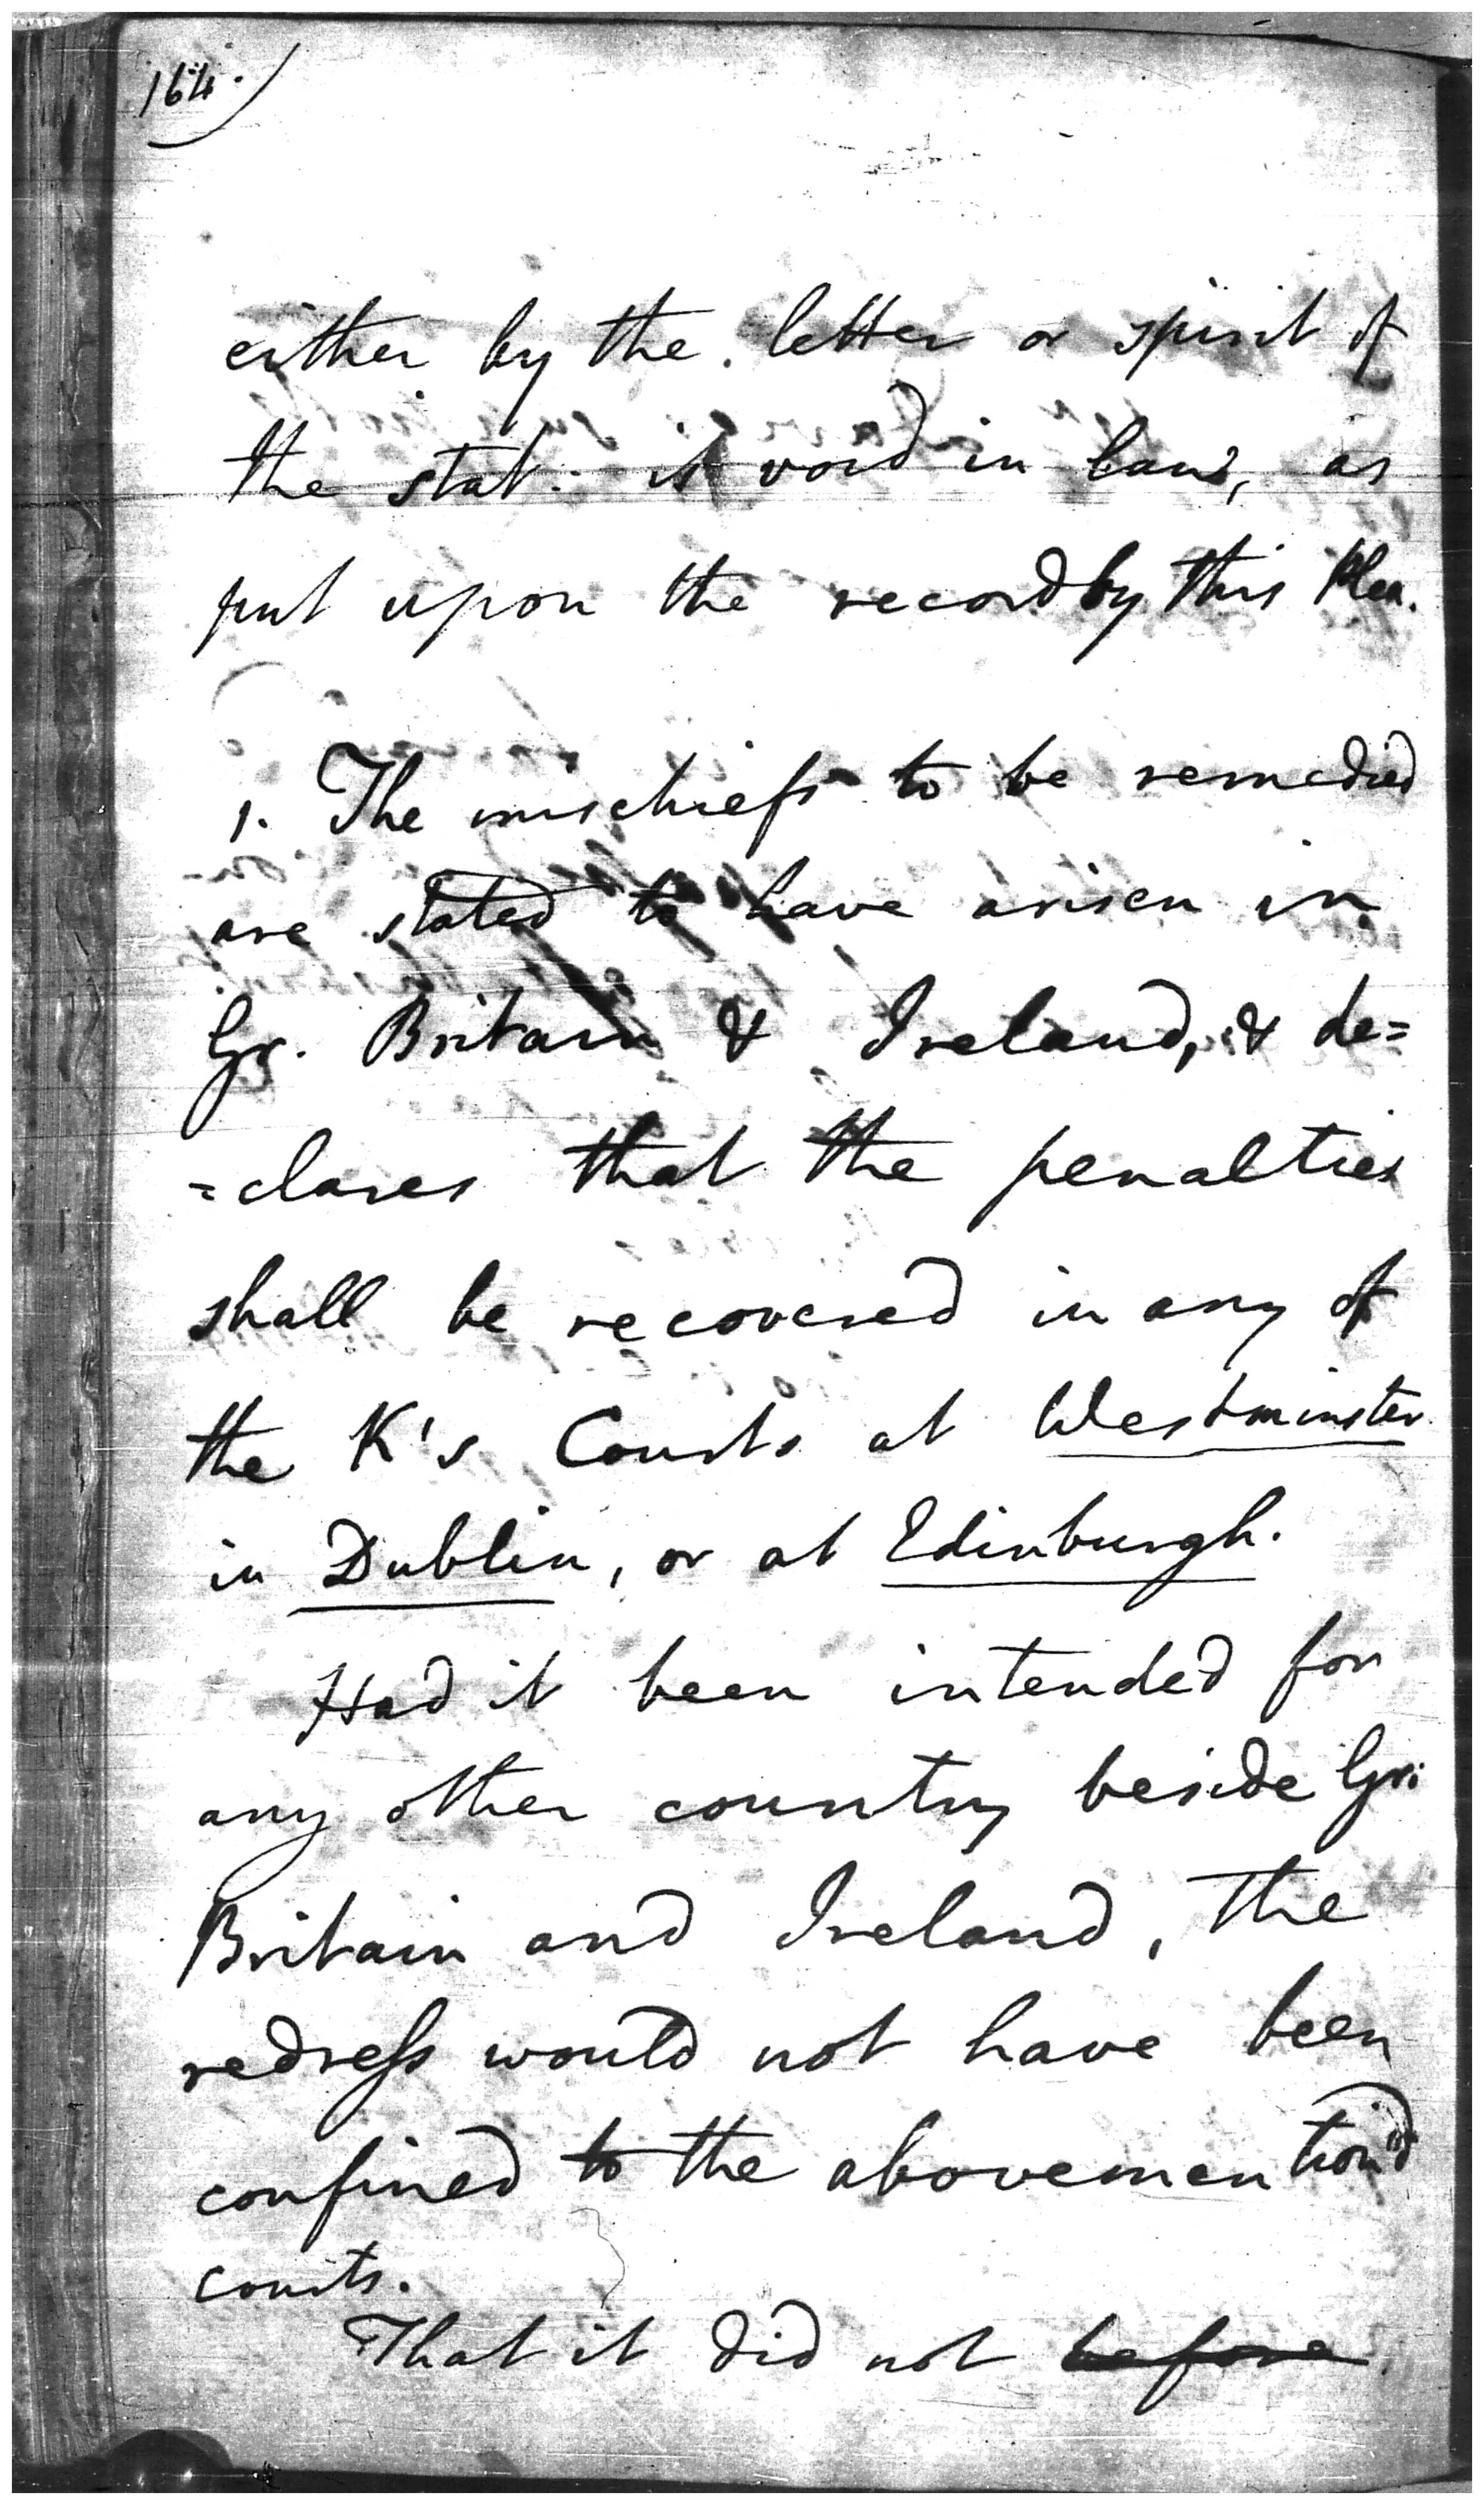 164.
either by the letter or spirit of
the stat. is void in law, as
put upon the record by this Plea.
1. The mischiefs to be remedied
are stated to have arisen in
Gr. Britain & Ireland, & de=
=clares that the penalties
shall be recovered in any of
the K's Courts at Westminster
in Dublin, or at Edinburgh.
Had it been intended for
any other country beside Gr.
Britain and Ireland, the
redress would not have been
confined to the abovemention'd
courts.
That it did not before